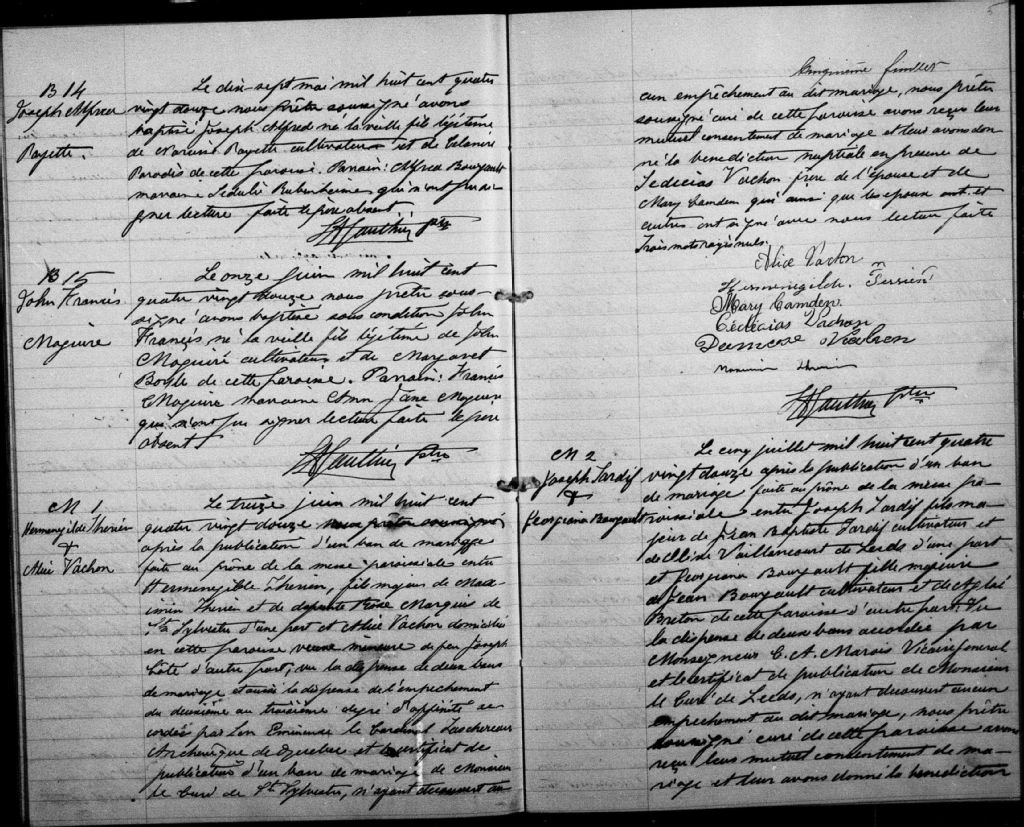 B 14
Joseph Alfred
Payette.
Le dix-sept mai mil huit cent quatre
vingt douze nous prêtre soussigné avons
baptisé Joseph Alfred né la veille fils légitime
de Narcisse Payette cultivateur et de
Paradis de cette paroisse. Parrain: Alfred Bourgault
marraine qui n'ont pu si-
gner lecture faite le père absent.
Gauthier ptre
B 15
John Francis
Maguire
Le onze juin mil huit cent
quatre vingt douze nous prêtre sous-
signé avons baptisé sous condition John
Francis né la veille fils légitime de John
Maguire cultivateur et de Margaret
Boyle de cette paroisse. Parrain: Francis
Maguire marraine Ann Jane Maguire
qui n'ont pu signer lecture faite le père
absent
Gauthier ptre
M 1
Hermenegilde Therien
&
Alice Vachon
Le treize juin mil huit cent
quatre vingt douze nous prêtre soussigné
après la publication d'un ban de mariage
faite au prône de la messe paroissiale entre
Hermenegilde Therien, fils majeur de Maxi-
min Therien et de défunte Rose Marquis de
St. Sylvestre d'une part et Alice Vachon domiciliée
en cette paroisse veuve mineure de feu Joseph
Coté d'autre part, vu la dispense de deux bans
de mariage et aussi la dispense de l'empêchement
du deuxième au troisième degré d'affinité ac-
cordés par Son Eminence le Cardinal Taschereau
Archevêque de Quebec et le certificat de
publication d'un ban de mariage de Monsieur
le Curé de St. Sylvestre, n'ayant découvert au
Cinquième feuillet
5
cun empêchement au dit mariage, nous prêtre
soussigné curé de cette paroisse avons reçu leur
mutuel consentement de mariage et leur avons don
né la bénédiction nuptiale en présence de
Vachon frère de l'épouse et de
Mary Camden qui ainsi que les époux et
autres ont signé avec nous lecture faite
Trois mots rayés nuls.
Alice Vachon
Hermenegilde Terrien
Mary Camden
Vachon
Damease Vachon
Gauthier ptre
M 2
Joseph Tardif
&
Georgiana Bourgault
Le cinq juillet mil huit cent quatre
vingt douze après la publication d'un ban
de mariage faite au prône de la messe pa-
roissiale entre Joseph Tardif fils ma-
jeur de Jean Baptiste Tardif cultivateur et
de Elise Vaillancourt de Leeds d'une part
et Georgiana Bourgault fille majeure
de Jean Bourgault cultivateur et de Aglaé
Breton de cette paroisse d'autre part. Vu
la dispense de deux bans accordée par
Monseigneur C. A. Marois Vicaire General
et le certificat de publication de Monsieur
le Curé de Leeds, n'ayant découvert aucun
empêchement au dit mariage, nous prêtre
soussigné curé de cette paroisse avons
reçu leur mutuel consentement de ma-
riage et leur avons donné la bénédiction